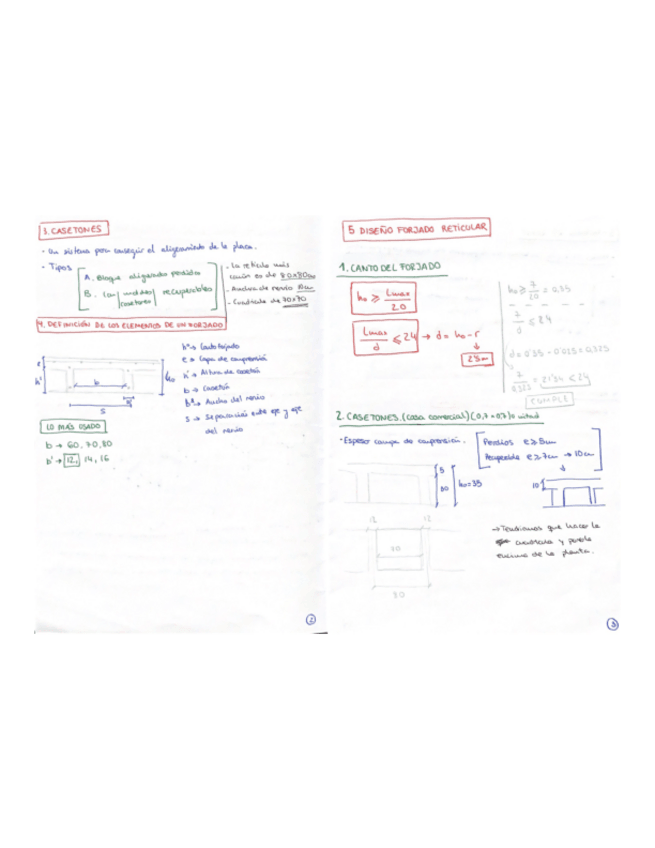 3. CASETONES
- Un sistema para conseguir el aligeramiento de la placa.
- Tipos
A. Bloque aligerado perdido
B. Con moldes recuperables
casetones
- La retícula más
común es de 80x80cm
- Ancho de nervio
- Cuadrícula de 70x70
4. DEFINICIÓN DE LOS ELEMENTOS DE UN FORJADO
e
h'
b
ho
b'
S
hº → Canto forjado
e → Capa de compresión
h' → Altura de casetón
b → Casetón
bº → Ancho del nervio
s → Separación entre eje y eje
del nervio
LO MÁS USADO
b → 60, 70, 80
b' → 12, 14, 16
2
5 DISEÑO FORJADO RETICULAR
1. CANTO DEL FORJADO
ho ≥ Lmax / 20
Lmax / d ≤ 24 → d = ho - r
ho ≥ 7 / 20 = 0,35
7 / d ≤ 24
d = 0'35 - 0'025 = 0,325
7 / 0,325 = 21'54 ≤ 24
CUMPLE
2. CASETONES. (casa comercial) (0,7 x 0,7)
- Espesor de compresión.
Perdido e ≥ 5cm
Recuperable e ≥ 7cm → 10cm
5
30
ho = 35
10
12 12
80
→ Tendríamos que hacer la
y ponerla
encima de la planta.
3